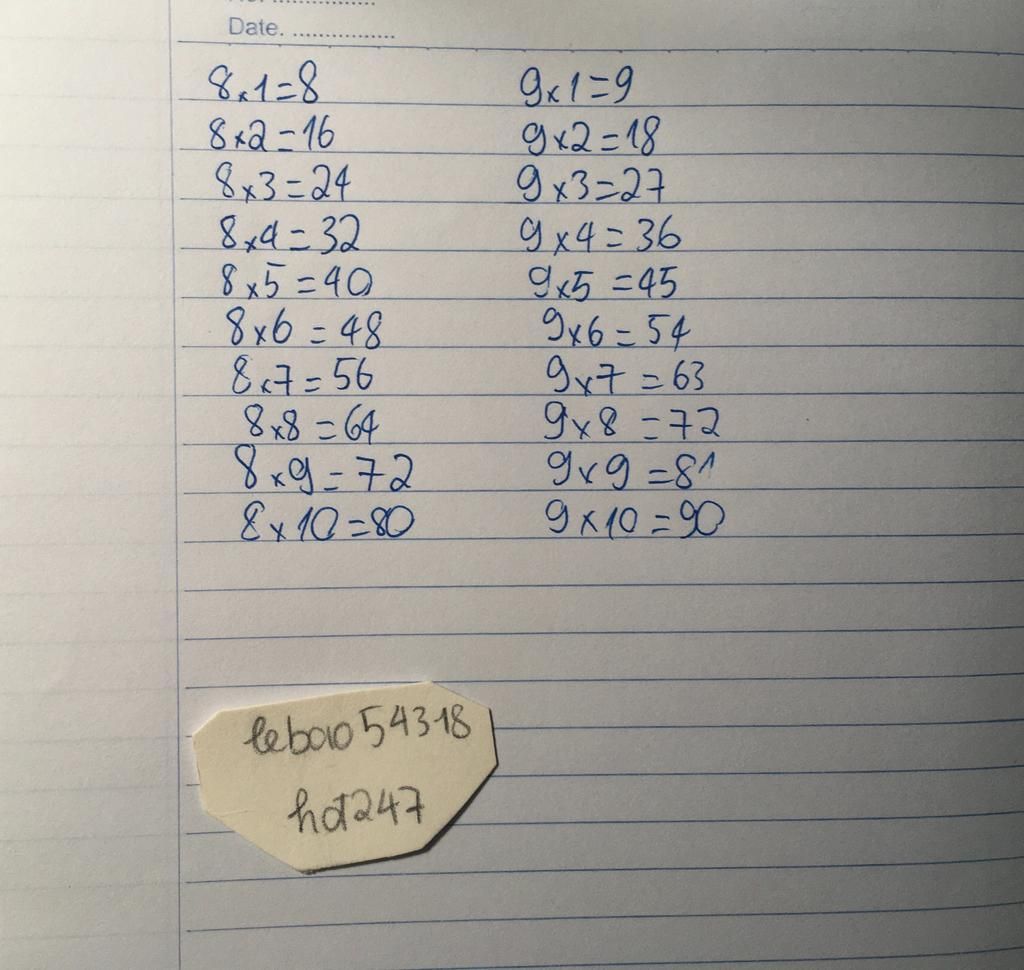 Date. ................
8x1=8
8x2=16
8x3=24
8x4=32
8x5=40
8x6=48
8x7=56
8x8=64
8x9=72
8x10=80
9x1=9
9x2=18
9x3=27
9x4=36
9x5=45
9x6=54
9x7=63
9x8=72
9x9=81
9x10=90
lebao54318
hot247